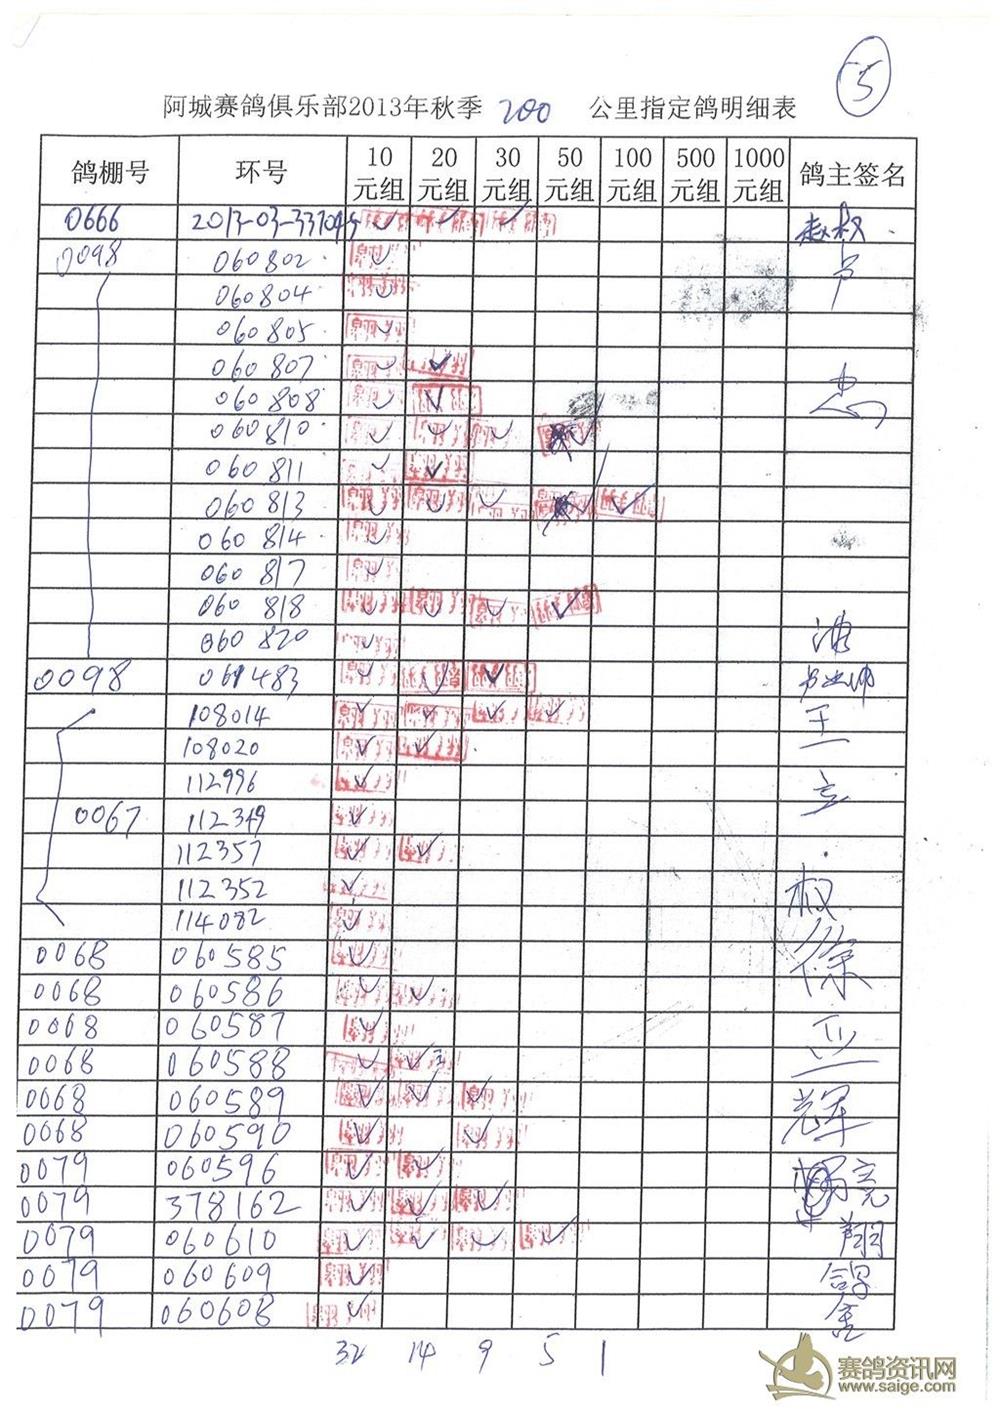 5
阿城赛鸽俱乐部2013年秋季 200 公里指定鸽明细表
鸽棚号 环号 10元组 20元组 30元组 50元组 100元组 500元组 1000元组 鸽主签名
0666 2013-03-337045 ✓ ✓ ✓
0098 060802 ✓
060804 ✓
060805 ✓
060807 ✓ ✓
060808 ✓ ✓
060810 ✓ ✓ ✓ ✓
060811 ✓ ✓
060813 ✓ ✓ ✓ ✓
060814 ✓
060817 ✓
060818 ✓ ✓ ✓ ✓
060820 ✓
0098 061483 ✓ ✓ ✓
108014 ✓ ✓ ✓ ✓ 王
108020 ✓ ✓
112996 ✓ 立
0067 112349 ✓
112357 ✓ ✓
112352 ✓ 权
114082 ✓
0068 060585 ✓ 徐
0068 060586 ✓ ✓
0068 060587 ✓ 亚
0068 060588 ✓ ✓
0068 060589 ✓ ✓ ✓ 辉
0068 060590 ✓ ✓
0079 060596 ✓ ✓
0079 378162 ✓ ✓ ✓
0079 060610 ✓ ✓ ✓ ✓ 翔
0079 060609 ✓ 鸽
0079 060608 ✓ 舍
32 14 9 5 1
赛鸽资讯网
www.saige.com